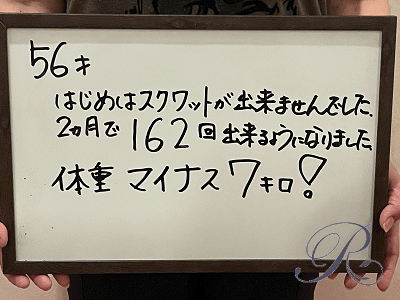 56才
はじめはスクワットが出来ませんでした。
2ヵ月で162回出来るようになりました。
体重 マイナス 7キロ!
R